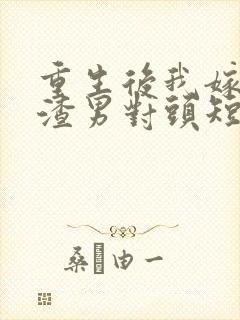 重生後我嫁
渣男對頭短
桑由一